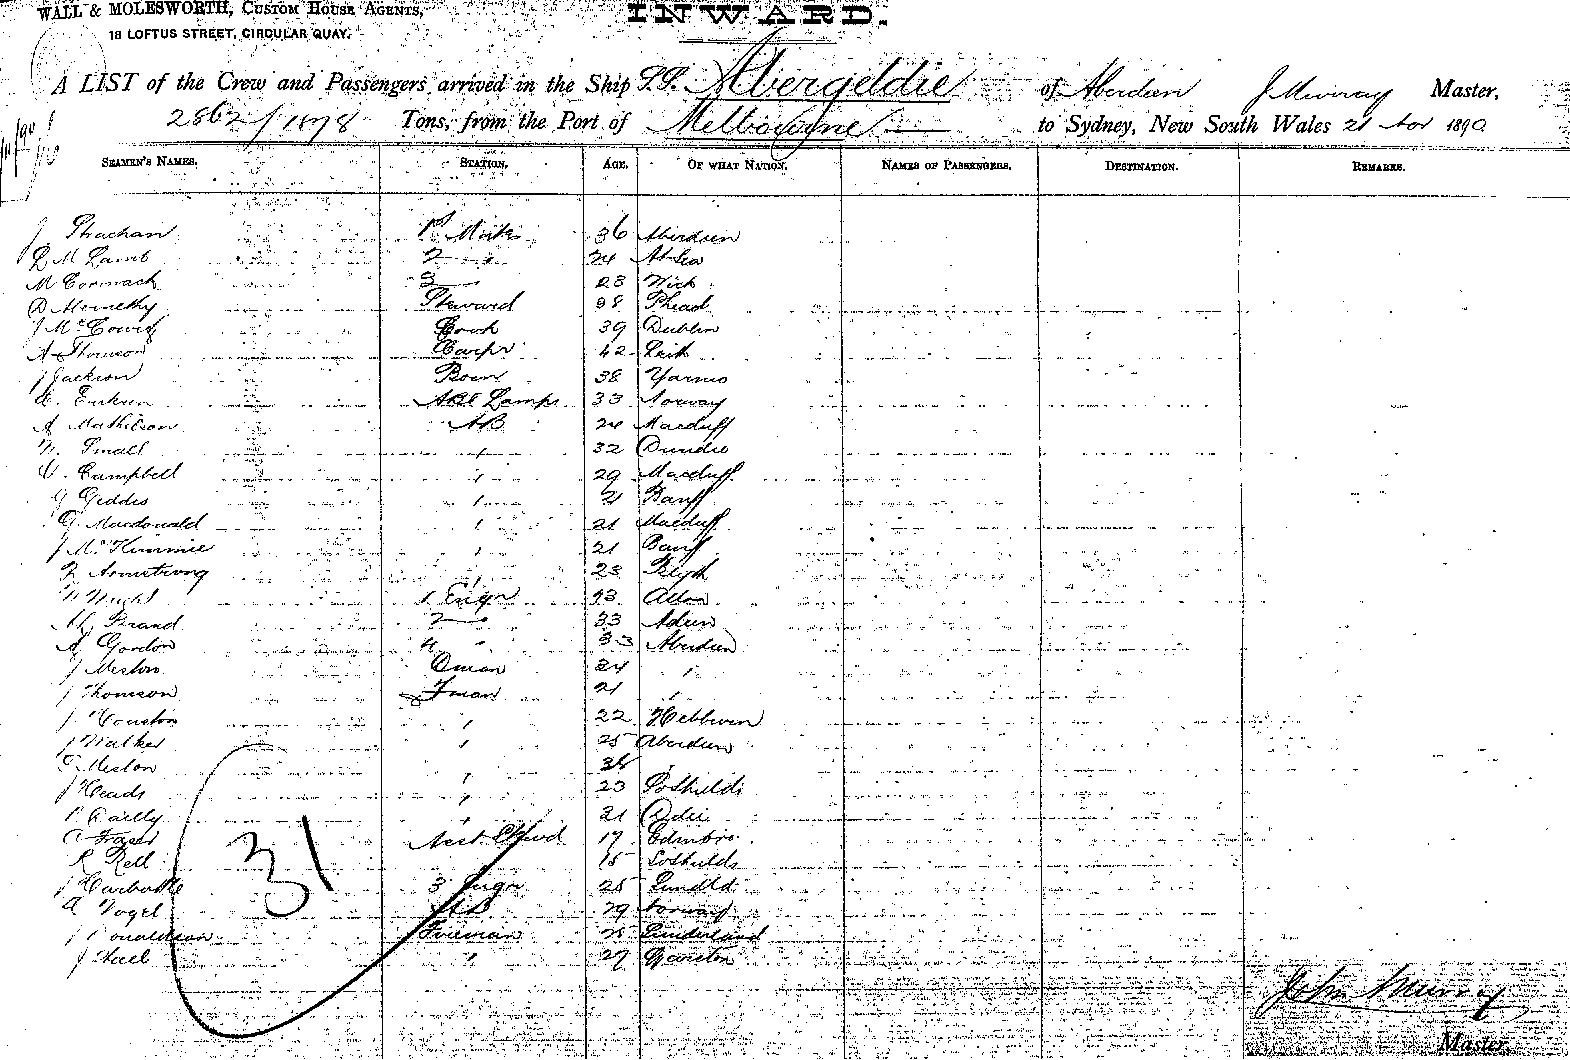 WALL & MOLESWORTH, CUSTOM HOUSE AGENTS,
18 LOFTUS STREET, CIRCULAR QUAY.
INWARD.
A LIST of the Crew and Passengers arrived in the Ship S.S. Abergeldie of Aberdeen J Murray Master,
2862/1898 Tons, from the Port of Melbourne to Sydney, New South Wales 21 Nov 1890
SEAMEN'S NAMES. STATION. AGE. OF WHAT NATION. NAMES OF PASSENGERS. DESTINATION. REMARKS.
J Strachan 1st Mate 36 Aberdeen
D M Lamb 2 " 24 At Sea
M Cormack 3 23 Wick
D Steward 38 Phead
J McCowif Cook 39 Dublin
A Thomson Carpr 42 Leith
J Jackson Bosn 38 Yarmo
E. AB & Lamps 33 Norway
A Mathieson AB 24 Macduff
W. Small " 32 Dundee
W. Campbell " 29 Macduff
G Geddes " 21 Banff
G. Macdonald " 21 Macduff
J McKimmie " 21 Banff
Armstrong " 23 Blyth
W Wright 1 Engr
M Brand 2 33
A Gordon 4 " 33 Aberdeen
J Meston Dman 24 "
J Thomson Fman 21 "
J Houston " 22 Hebburn
J Walker " 25 Aberdeen
Meston
J Heads " 23 Soshields
P Railly " 21
Fraser Asst Stwd 17 Edinbro
R Bell 15 Soshields
J Harbottle 3 Engr 25 Sundld
A Vogel AB 29 Norway
J Donaldson Fireman 25 Sunderland
J " 27 Garston
31
John Murray
Master.